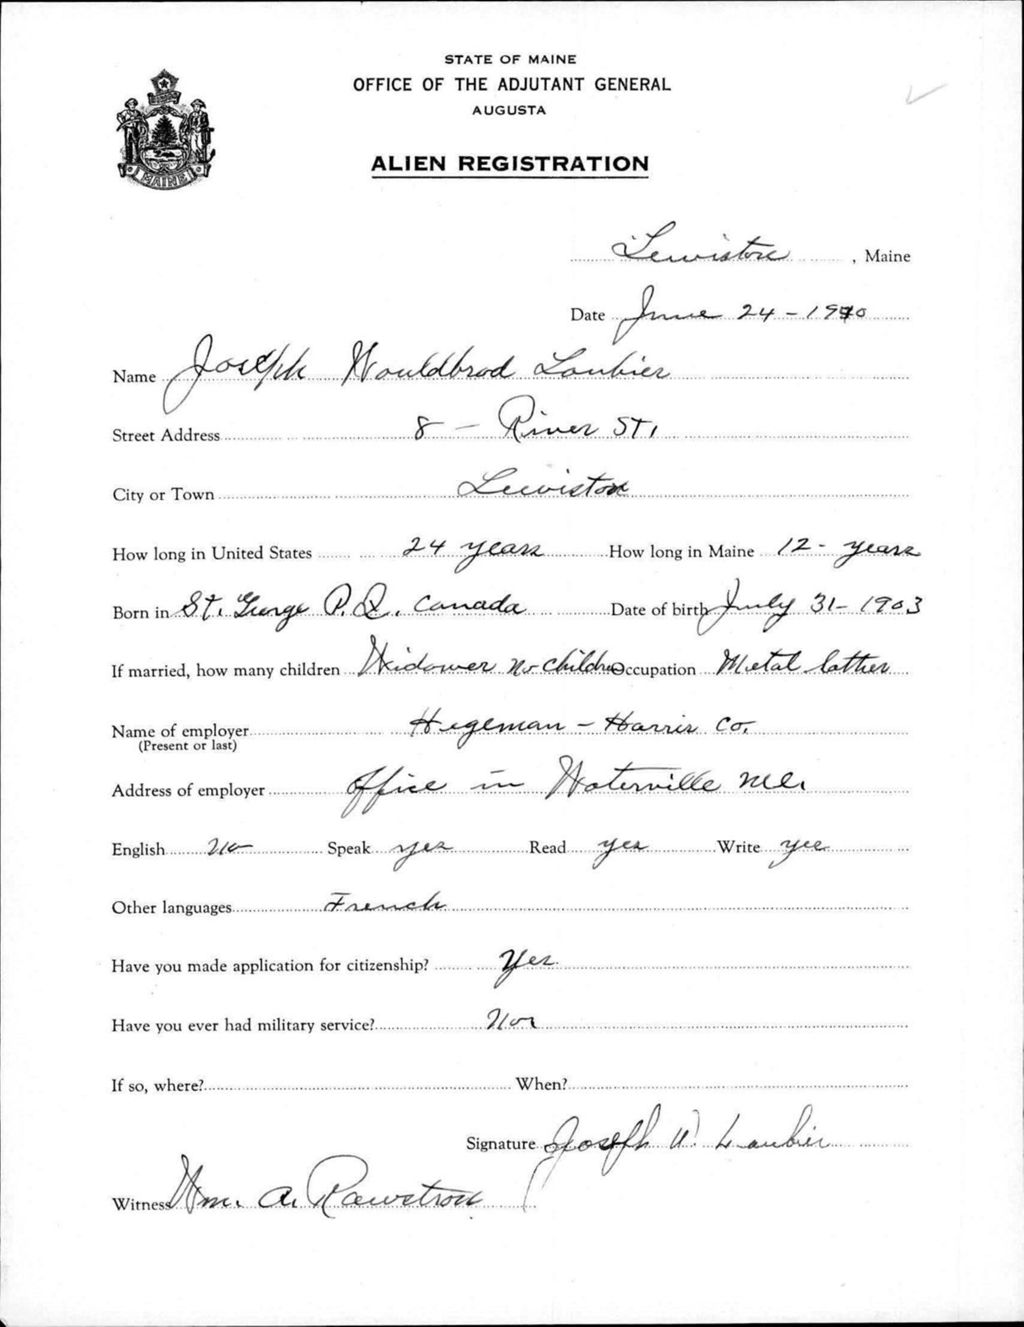 STATE OF MAINE
OFFICE OF THE ADJUTANT GENERAL
AUGUSTA
MAINE
ALIEN REGISTRATION
Lewiston, Maine
Date June 24 - 1940
Name Joseph Wouldbrod Loubier
Street Address 8 - River St.
City or Town Lewiston
How long in United States 24 years How long in Maine 12 - years
Born in St. George P.Q. Canada Date of birth July 31 - 1903
If married, how many children Widower No children Occupation Metal lather
Name of employer Hegeman - Harris Co.
(Present or last)
Address of employer Office in Waterville Me.
English No Speak yes Read yes Write yes
Other languages French
Have you made application for citizenship? Yes
Have you ever had military service? No
If so, where? When?
Signature Joseph W. Loubier
Witness Wm. A. Rawstron